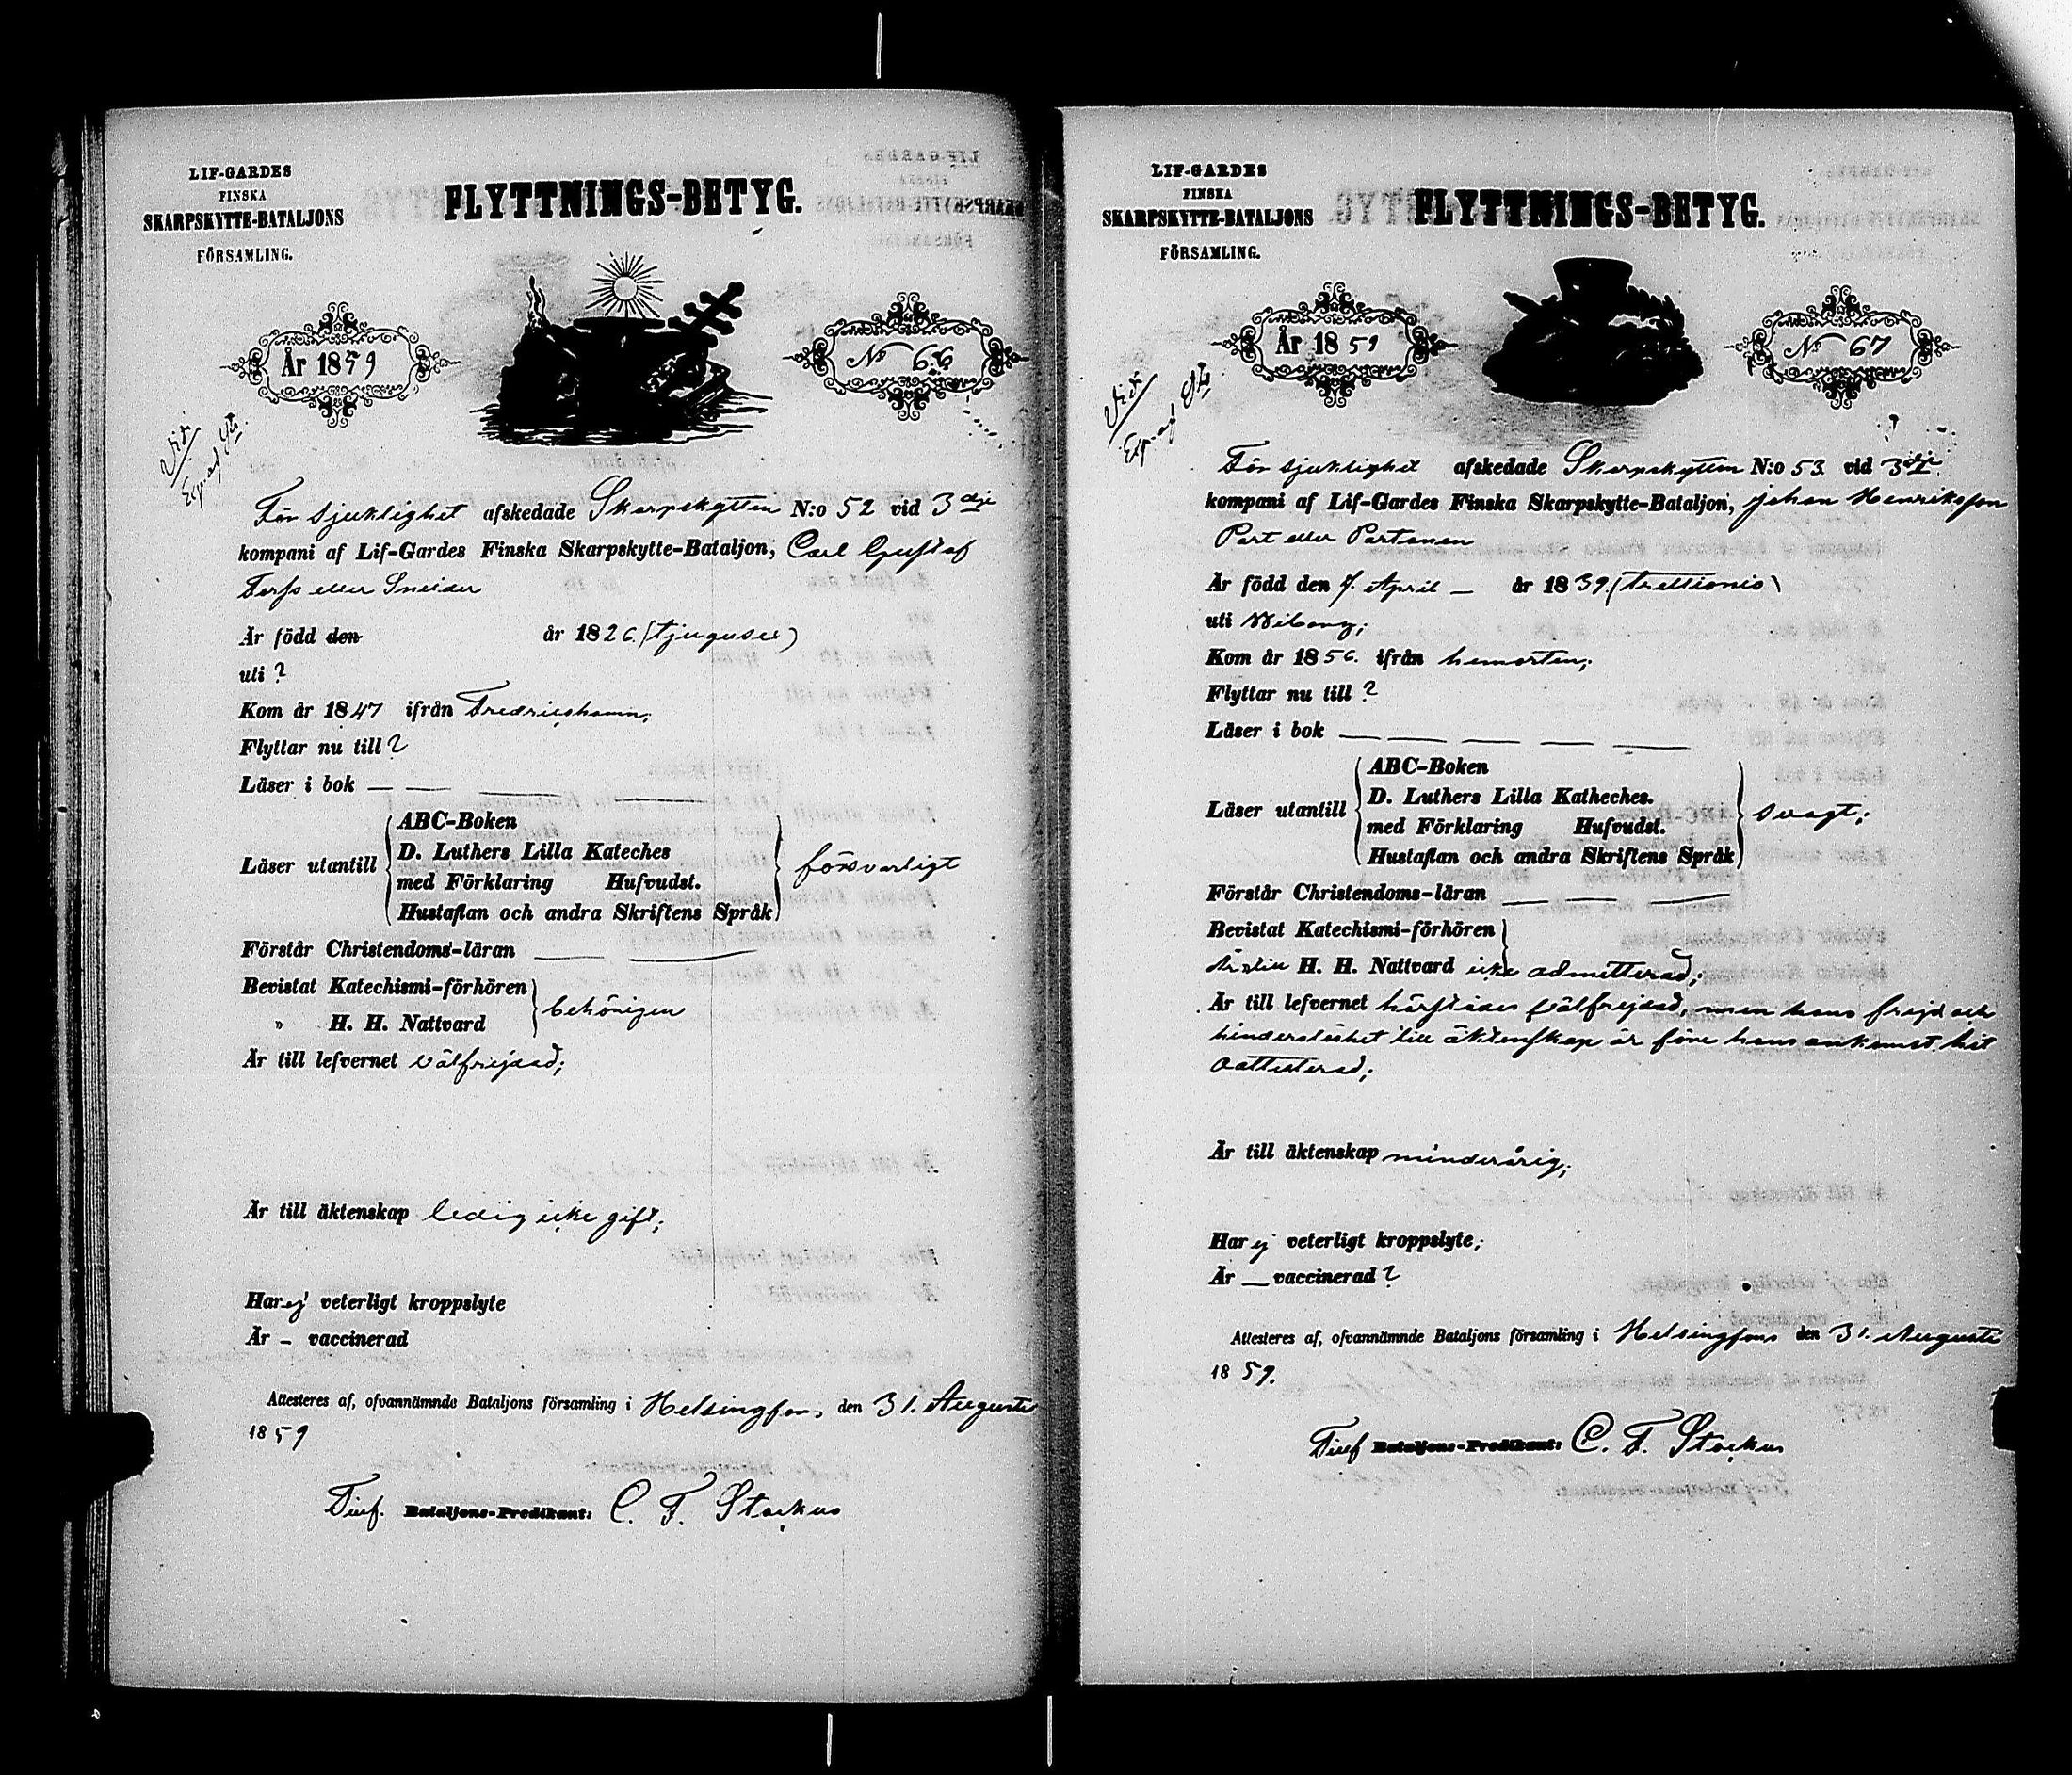 LIF-GARDES
FINSKA
SKARPSKYTTE-BATALJONS
FÖRSAMLING.
FLYTTNINGS-BETYG.
År 1859
No 66
För sjuklighet afskedade Skarpskytten N:o 52 vid 3dje
kompani af Lif-Gardes Finska Skarpskytte-Bataljon, Carl Gustaf
eller Sneider
Är född den år 1826. (tjugusex)
uti ?
Kom år 1847 ifrån Fredricshamn;
Flyttar nu till ?
Läser i bok — — — —
ABC-Boken
D. Luthers Lilla Kateches
Läser utantill försvarligt
med Förklaring Hufvudst.
Hustaflan och andra Skriftens Språk
Förstår Christendoms-läran — —
Bevistat Katechismi-förhören
behörigen
„ H. H. Nattvard
Är till lefvernet välfrejdad;
Är till äktenskap ledig icke gift;
Har ej veterligt kroppslyte
Är – vaccinerad
Attesteres af, ofvannämnde Bataljons församling i Helsingfors, den 31. Augusti
1859
Bataljons-Predikant: C. F. Stockus
LIF-GARDES
FINSKA
SKARPSKYTTE-BATALJONS
FÖRSAMLING.
FLYTTNINGS-BETYG.
År 1859
No 67
För sjuklighet afskedade Skarpskytten N:o 53 vid 3dje
kompani af Lif-Gardes Finska Skarpskytte-Bataljon, Johan Henriksson
Part eller Partanen
Är född den 7. April — år 1839. (trettionio)
uti Wiborg;
Kom år 1856. ifrån hemorten;
Flyttar nu till ?
Läser i bok — — — — —
ABC-Boken
D. Luthers Lilla Katheches.
Läser utantill svagt;
med Förklaring Hufvudst.
Hustaflan och andra Skriftens Språk
Förstår Christendoms-läran — — —
Bevistat Katechismi-förhören
Är till H. H. Nattvard icke admitterad;
Är till lefvernet härstädes välfrejdad, men hans frejd och
hinderslöshet till äktenskap är före hans ankomst hit
oattesterad;
Är till äktenskap minderårig;
Har ej veterligt kroppslyte;
Är — vaccinerad ?
Attesteres af, ofvannämnde Bataljons församling i Helsingfors den 31. Augusti
1859.
Bataljons-Predikant: C. F. Stockus